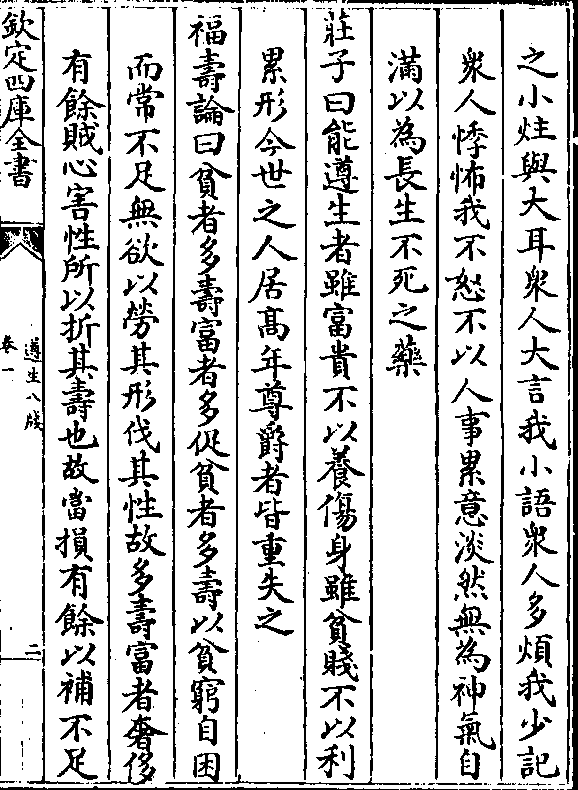 之小炷與大耳衆人大言我小語衆人多煩我少記
衆人悸怖我不怒不以人事累意淡然無為神氣自
滿以為長生不死之藥
莊子曰能遵生者雖富貴不以養傷身雖貧賤不以利
累形今世之人居髙年尊爵者皆重失之
福壽論曰貧者多壽富者多促貧者多壽以貧窮自困
而常不足無欲以勞其形伐其性故多壽富者奢侈
有餘賊心害性所以折其壽也故當損有餘以補不足
欽定四庫全書
遵生八牋
卷一
二